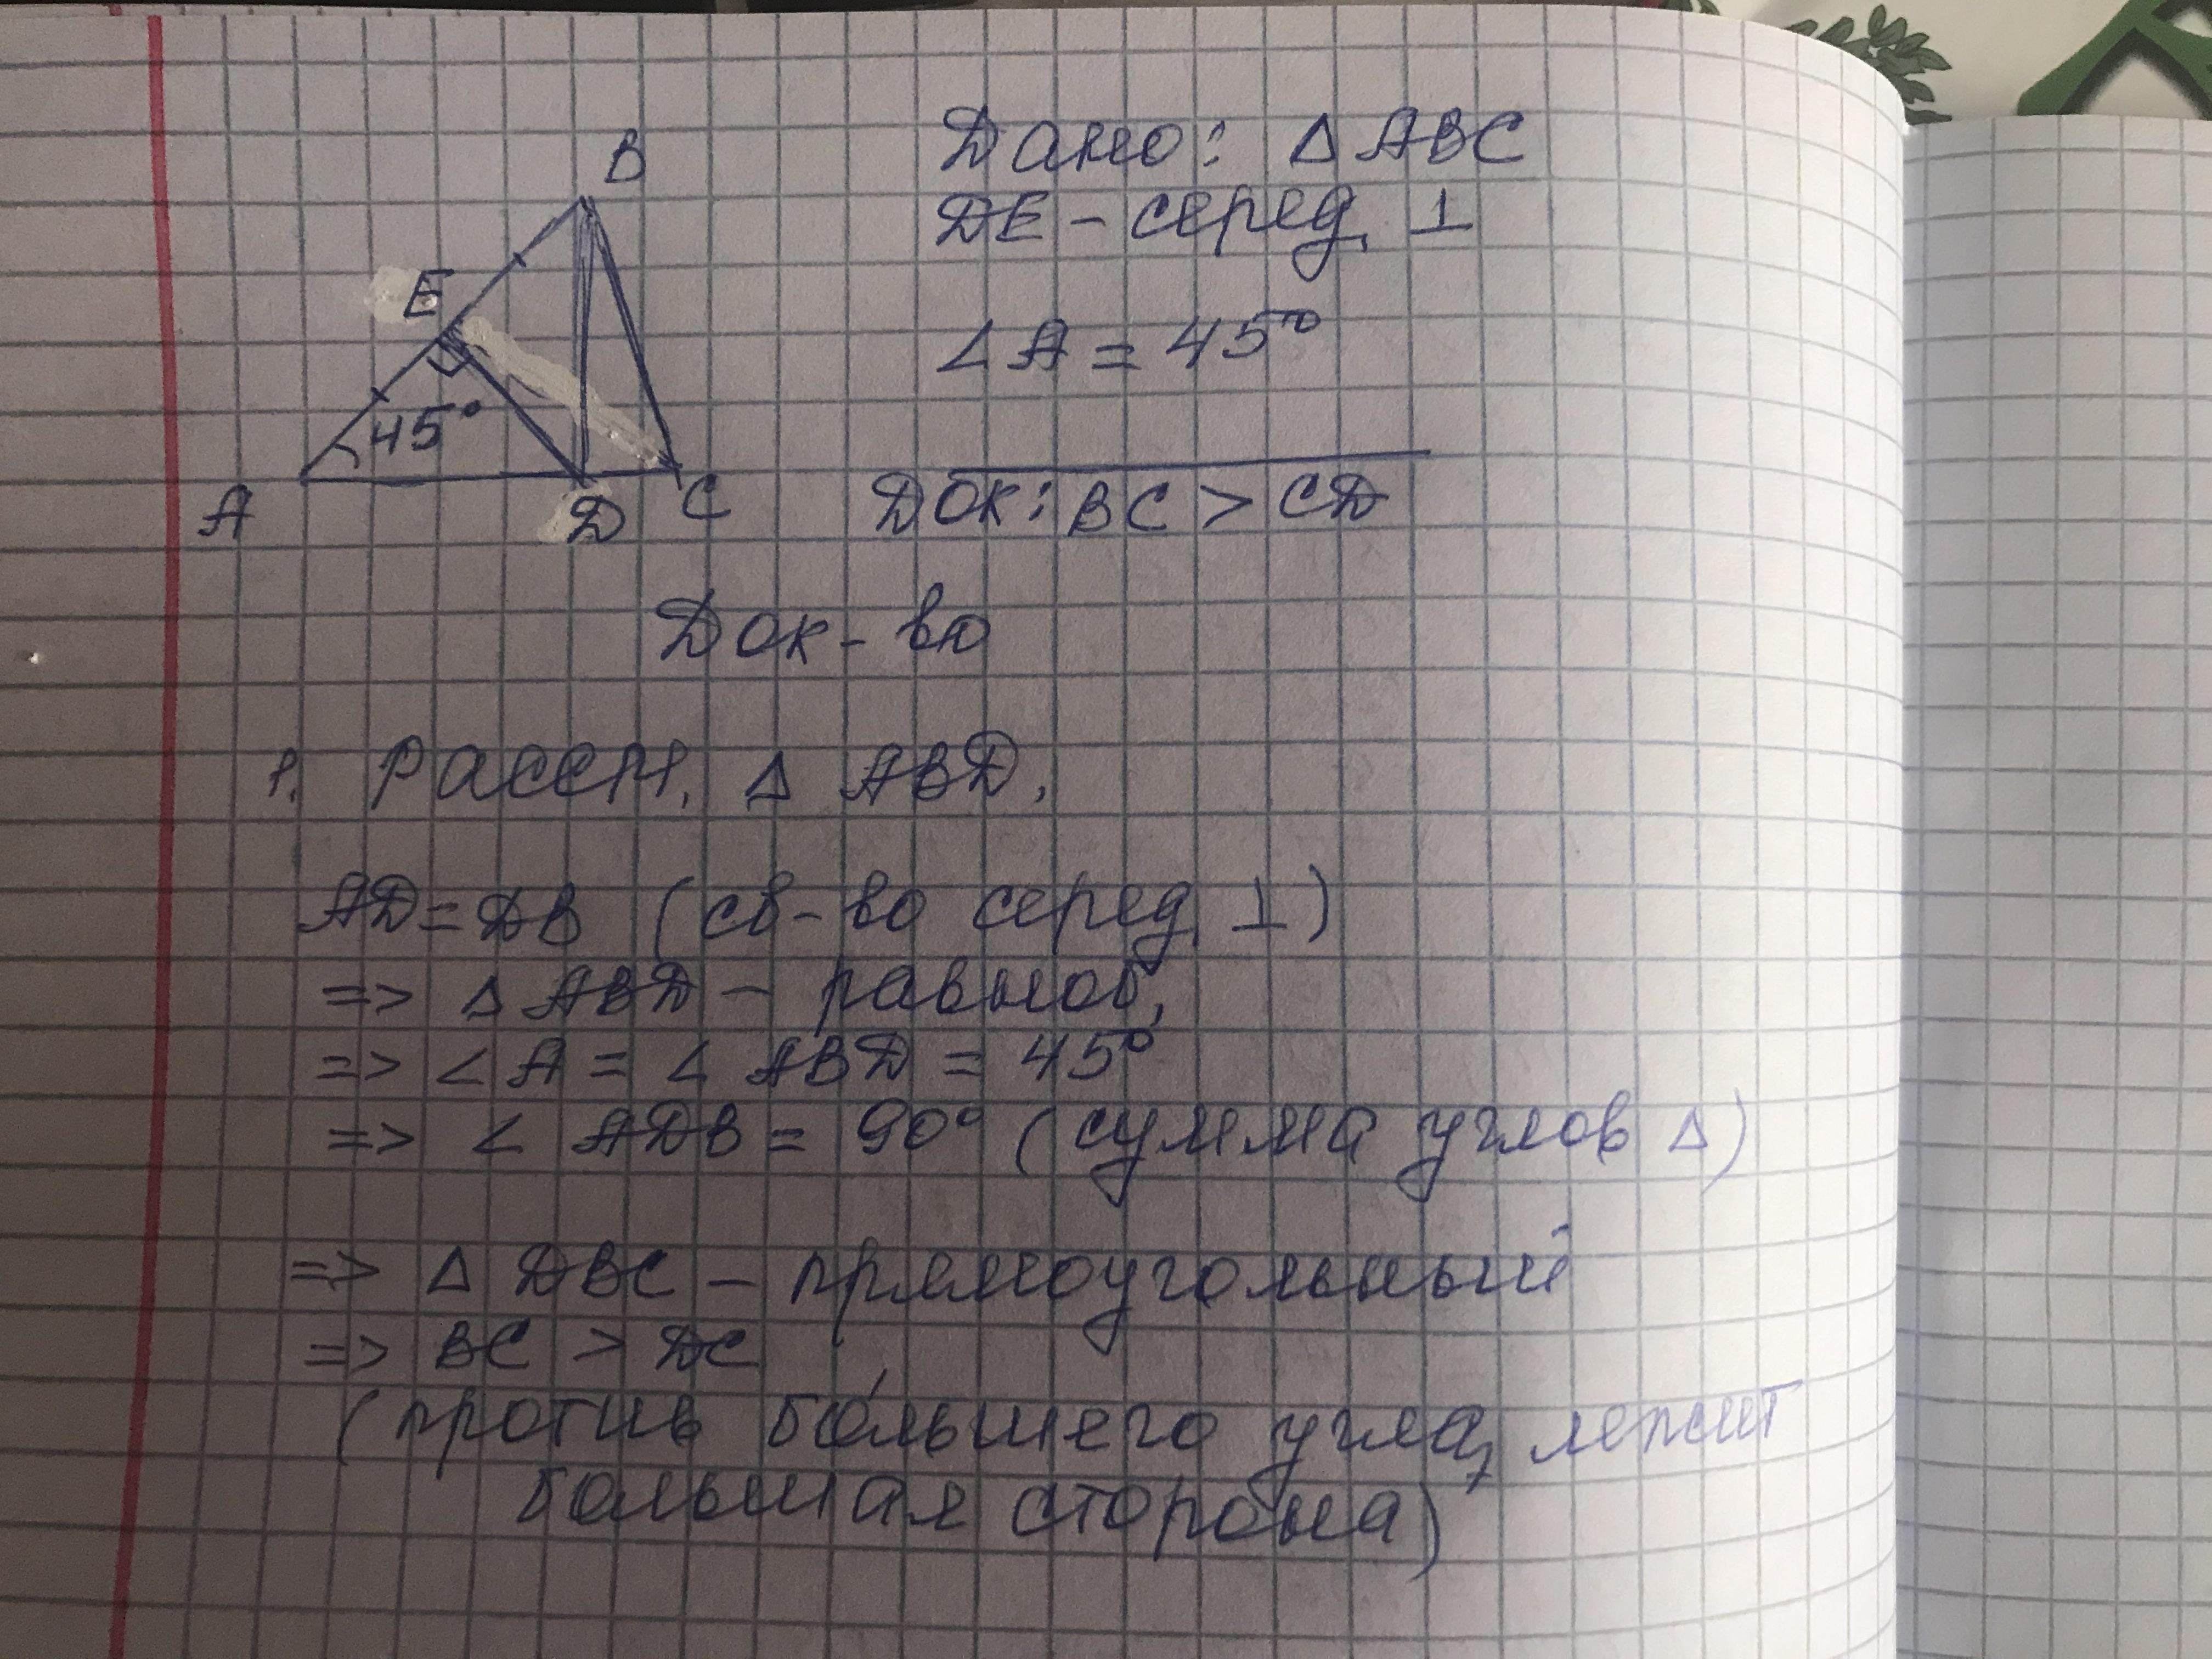 B
E
45°
A
D
C
Дано: △ ABC
DE – серед. ⊥
∠A = 45°
Док: BC > CD
Док-во
1. Рассм. △ ABD,
AD = DB (св-во серед. ⊥)
=> △ ABD – равноб,
=> ∠ A = ∠ ABD = 45°
=> ∠ ADB = 90° (сумма углов △)
=> △ DBC – прямоугольный
=> BC > DC
(против бо́льшего угла, лежит
большая сторона)